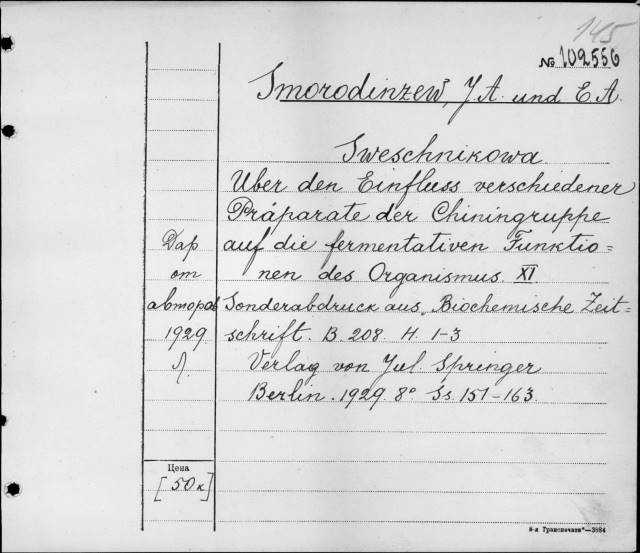 145
№ 102556
Smorodinzew, J. A. und E. A.
Sweschnikowa
Über den Einfluss verschiedener
Präparate der Chiningruppe
Дар auf die fermentativen Funktio=
от nen des Organismus. XI.
авторов Sonderabdruck aus „Biochemische Zeit=
1929 schrift. B. 208. H. 1-3
Л. Verlag von Jul. Springer
Berlin. 1929. 8° Ss. 151-163.
Цена
[50к]
8-я Транспечати"—3884